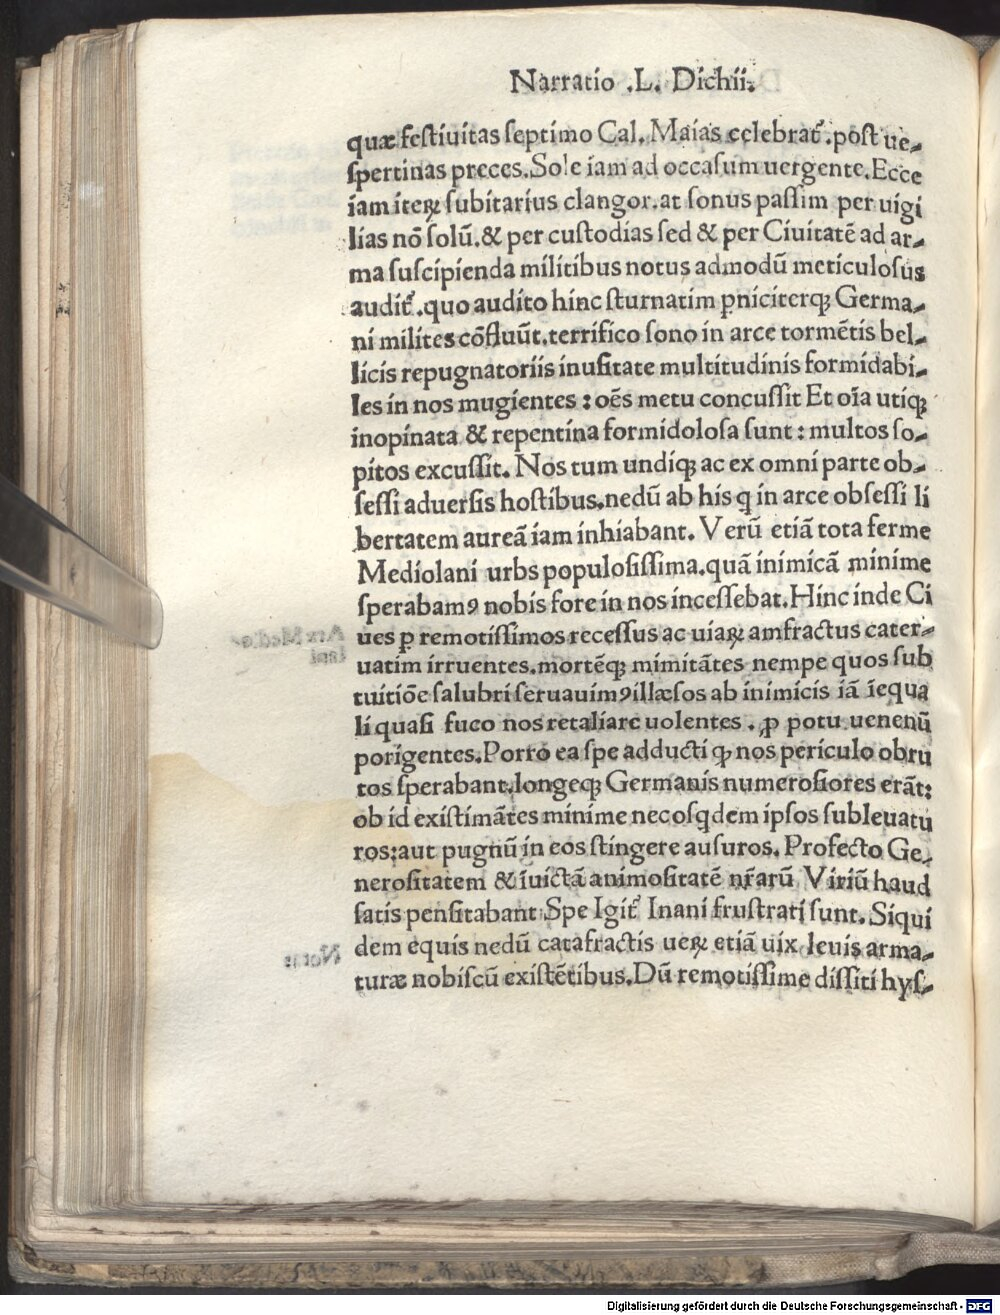 Narratio .L. Dichii.
quæ festiuitas septimo Cal. Maias celebrat᷑. post ue-
spertinas preces. Sole iam ad occasum uergente. Ecce
iam iteꝝ subitarius clangor. at sonus passim per uigi
lias nō solū. & per custodias sed & per Ciuitatē ad ar-
ma suscipienda militibus notus admodū meticulosus
audit᷑. quo audito hinc sturnatim ꝑniciterqꝫ Germa-
ni milites cōfluūt. terrifico sono in arce tormētis bel-
licis repugnatoriis inusitate multitudinis formidabi-
les in nos mugientes : oēs metu concussit Et oīa utiqꝫ
inopinata & repentina formidolosa sunt : multos so-
pitos excussit. Nos tum undiqꝫ ac ex omni parte ob-
sessi aduersis hostibus. nedū ab his q in arce obsessi li
bertatem aureā iam inhiabant. Verū etiā tota ferme
Mediolani urbs populosissima. quā inimicā minime
sperabamꝰ nobis fore in nos incessebat. Hinc inde Ci
ues ꝑ remotissimos recessus ac uiaꝝ amfractus cater-
uatim irruentes. mortēqꝫ mimitātes nempe quos sub
tuitiōe salubri seruauimꝰ illæsos ab inimicis iā ieq̄ua
li quasi fuco nos retaliare uolentes . ꝓ potu uenenū
porigentes. Porro ea spe adducti ꝙ nos periculo obru
tos sperabant. longeqꝫ Germanis numerosiores erāt:
ob id existimātes minime necosqdem ipsos subleuatu
ros: aut pugnū in eos stingere ausuros. Profecto Ge-
nerositatem & īuictā animositatē nr̄arū Viriū haud
satis pensitabant Spe Igit᷑ Inani frustrati sunt. Siqui
dem equis nedū catafractis ueꝝ etiā uix leuis arma-
turæ nobiscū existētibus. Dū remotissime dissiti hys-
Digitalisierung gefördert durch die Deutsche Forschungsgemeinschaft - DFG